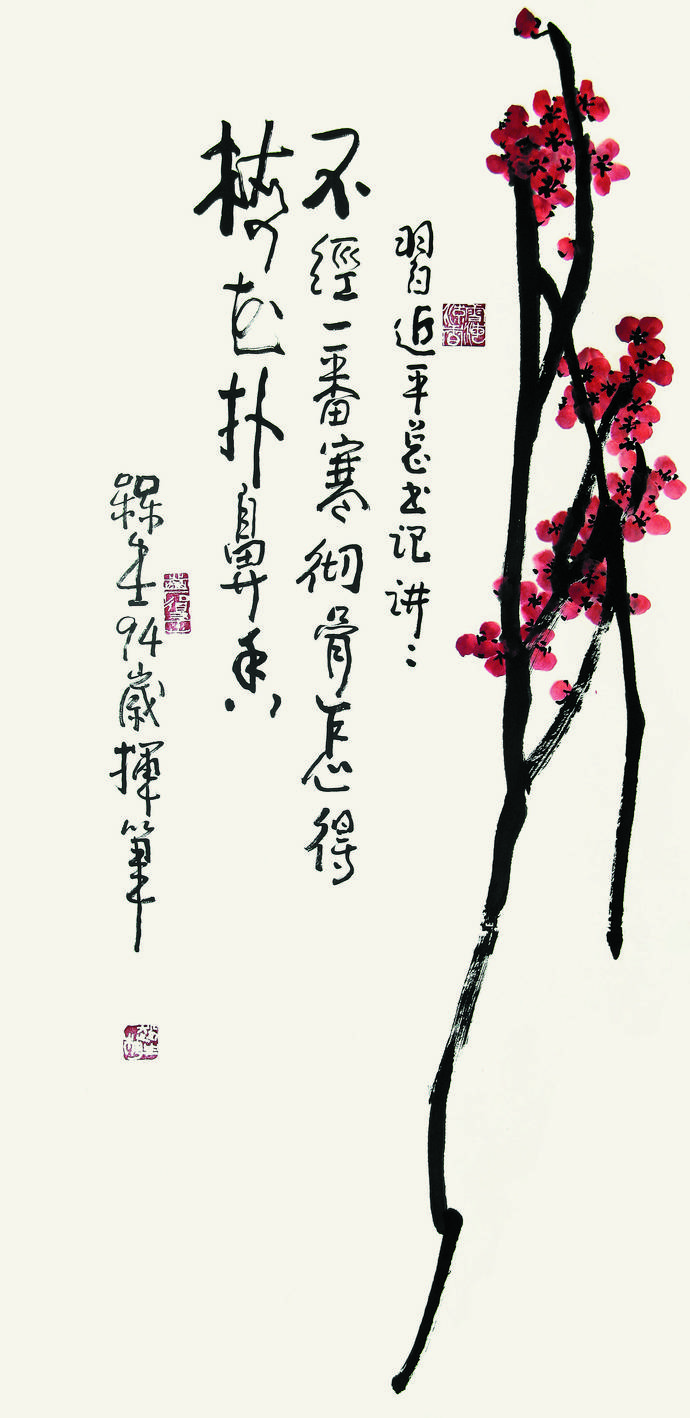 習近平总书记讲：
不經一番寒彻骨怎得
梅花扑鼻香
94歲揮筆